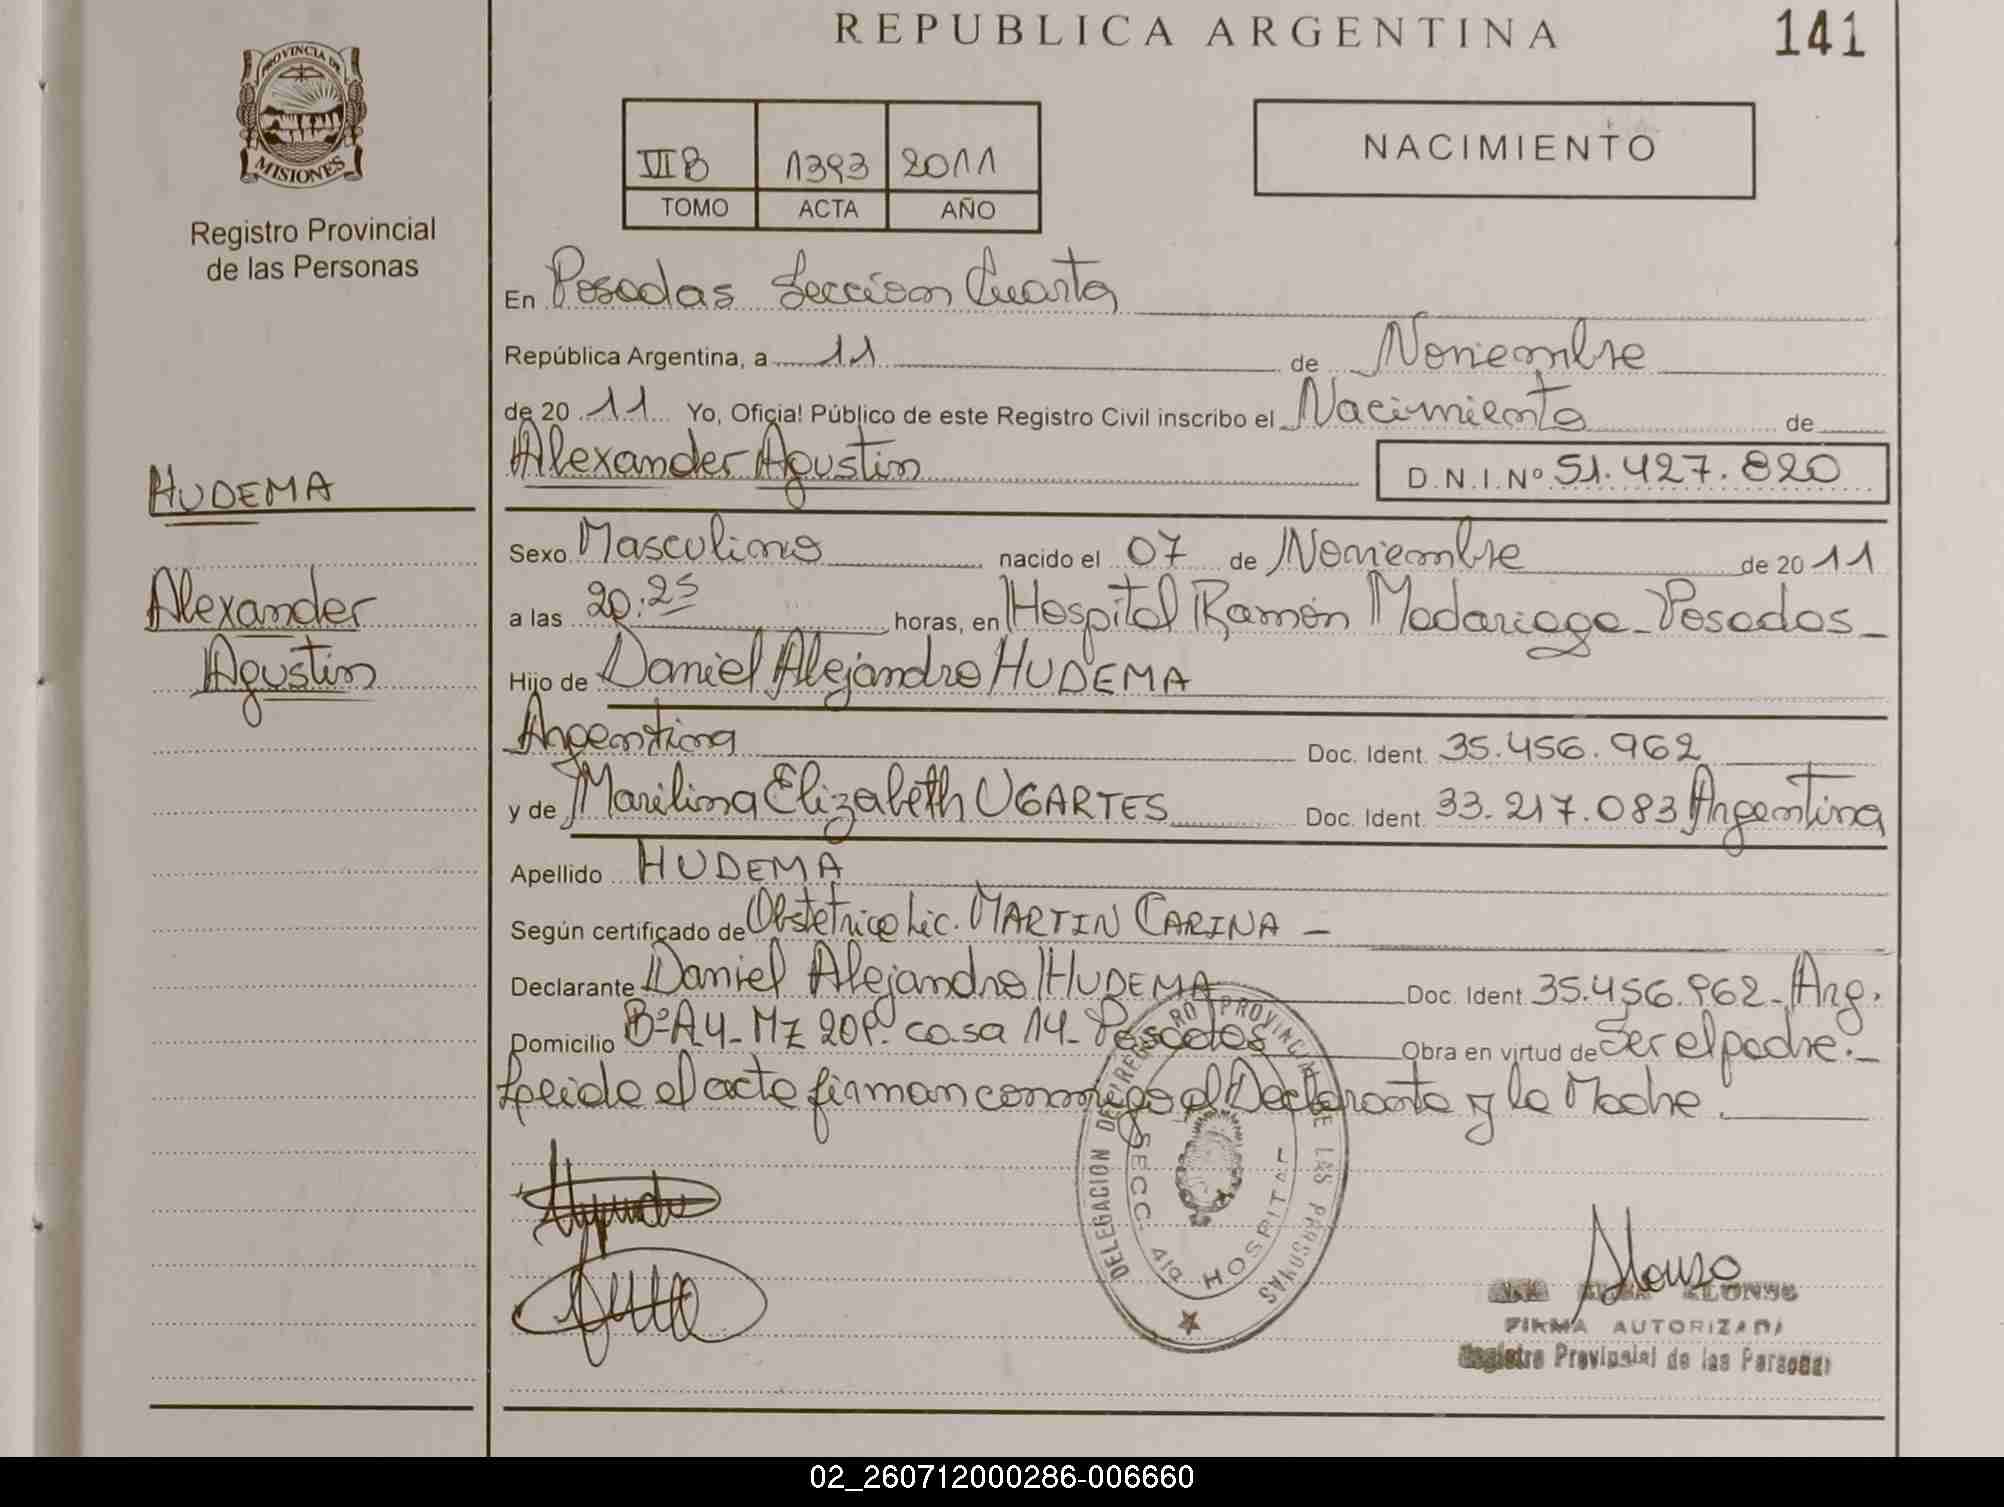 REPUBLICA ARGENTINA
141
PROVINCIA DE
MISIONES
Registro Provincial
de las Personas
VII B 1393 2011
TOMO ACTA AÑO
NACIMIENTO
En Posadas Seccion Cuarta
República Argentina, a 11 de Noviembre
de 20 11 Yo, Oficial Público de este Registro Civil inscribo el Nacimiento de
Alexander Agustin
D.N.I.Nº 51.427.820
HUDEMA
Alexander
Agustin
Sexo Masculino nacido el 07 de Noviembre de 20 11
a las 20:25 horas, en Hospital Ramón Madariaga - Posadas -
Hijo de Daniel Alejandro HUDEMA
Argentina Doc. Ident. 35.456.962
y de Marilina Elizabeth UGARTES Doc. Ident. 33.217.083 Argentina
Apellido HUDEMA
Según certificado de Obstetrica Lic. MARTIN CARINA -
Declarante Daniel Alejandro HUDEMA Doc. Ident 35.456.962 - Arg.
Domicilio Bº A4 - Mz 20 P. casa 14 - Posadas Obra en virtud de Ser el padre. -
Leida el acta firman conmigo el Declarante y la Madre.
DELEGACION DEL REGISTRO PROVINCIAL DE LAS PERSONAS
SECC. 4ta HOSPITAL
Alonso
ALONSO
FIRMA AUTORIZADA
Registro Provincial de las Personas
02_260712000286-006660